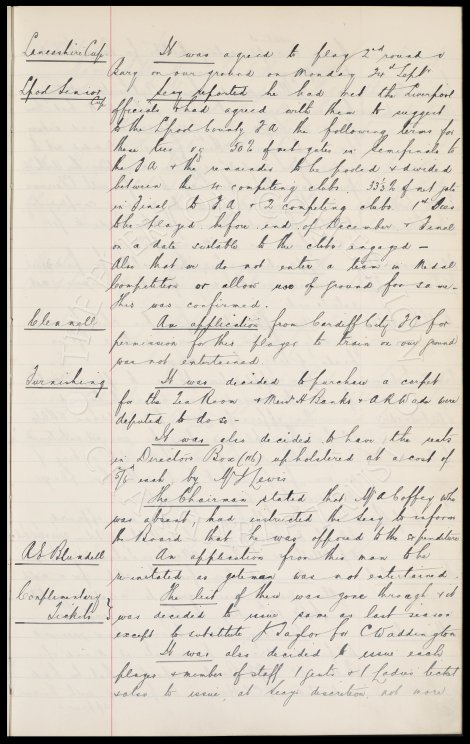 Lancashire Cup
It was agreed to play 2nd round v
Bury on our ground on Monday 24th Septr
Lpool Senior Cup
Secy reported he had met the Liverpool
officials & had agreed with them to suggest
to the Lpool County F A the following terms for
these ties vg 50% of net gates in Semifinals to
the F A & the remainder to be pooled & divided
between the 4 competing clubs. 33⅓% of net gate
in Final to F A & 2 competing clubs. 1st
to be played before end of December & Final
on a date suitable to the clubs engaged –
Also that we do not enter a team in Medal
Competition or allow use of ground for same.
This was confirmed.
Clennell
An application from Cardiff City FC for
permission for this player to train on our ground
was not entertained.
Furnishing
It was decided to purchase a carpet
for the Tea Room & Messrs H Banks & A R Wade were
deputed to do so –
It was also decided to have the seats
in Directors Box (116) upholstered at a cost of
5/6 each by Mr Lewis
The Chairman stated that Mr A Coffey who
was absent, had instructed the Secy to inform
the Board that he was opposed to the expenditure
A E Blundell
An application from this man to be
reinstated as gateman was not entertained.
Complimentary Tickets
The list of these was gone through & it
was decided to issue same as last season
except to substitute J Taylor for C Waddington
It was also decided to issue each
player & member of staff 1 gents & 1 Ladies ticket
& also to issue, at Secy's discretion, not more